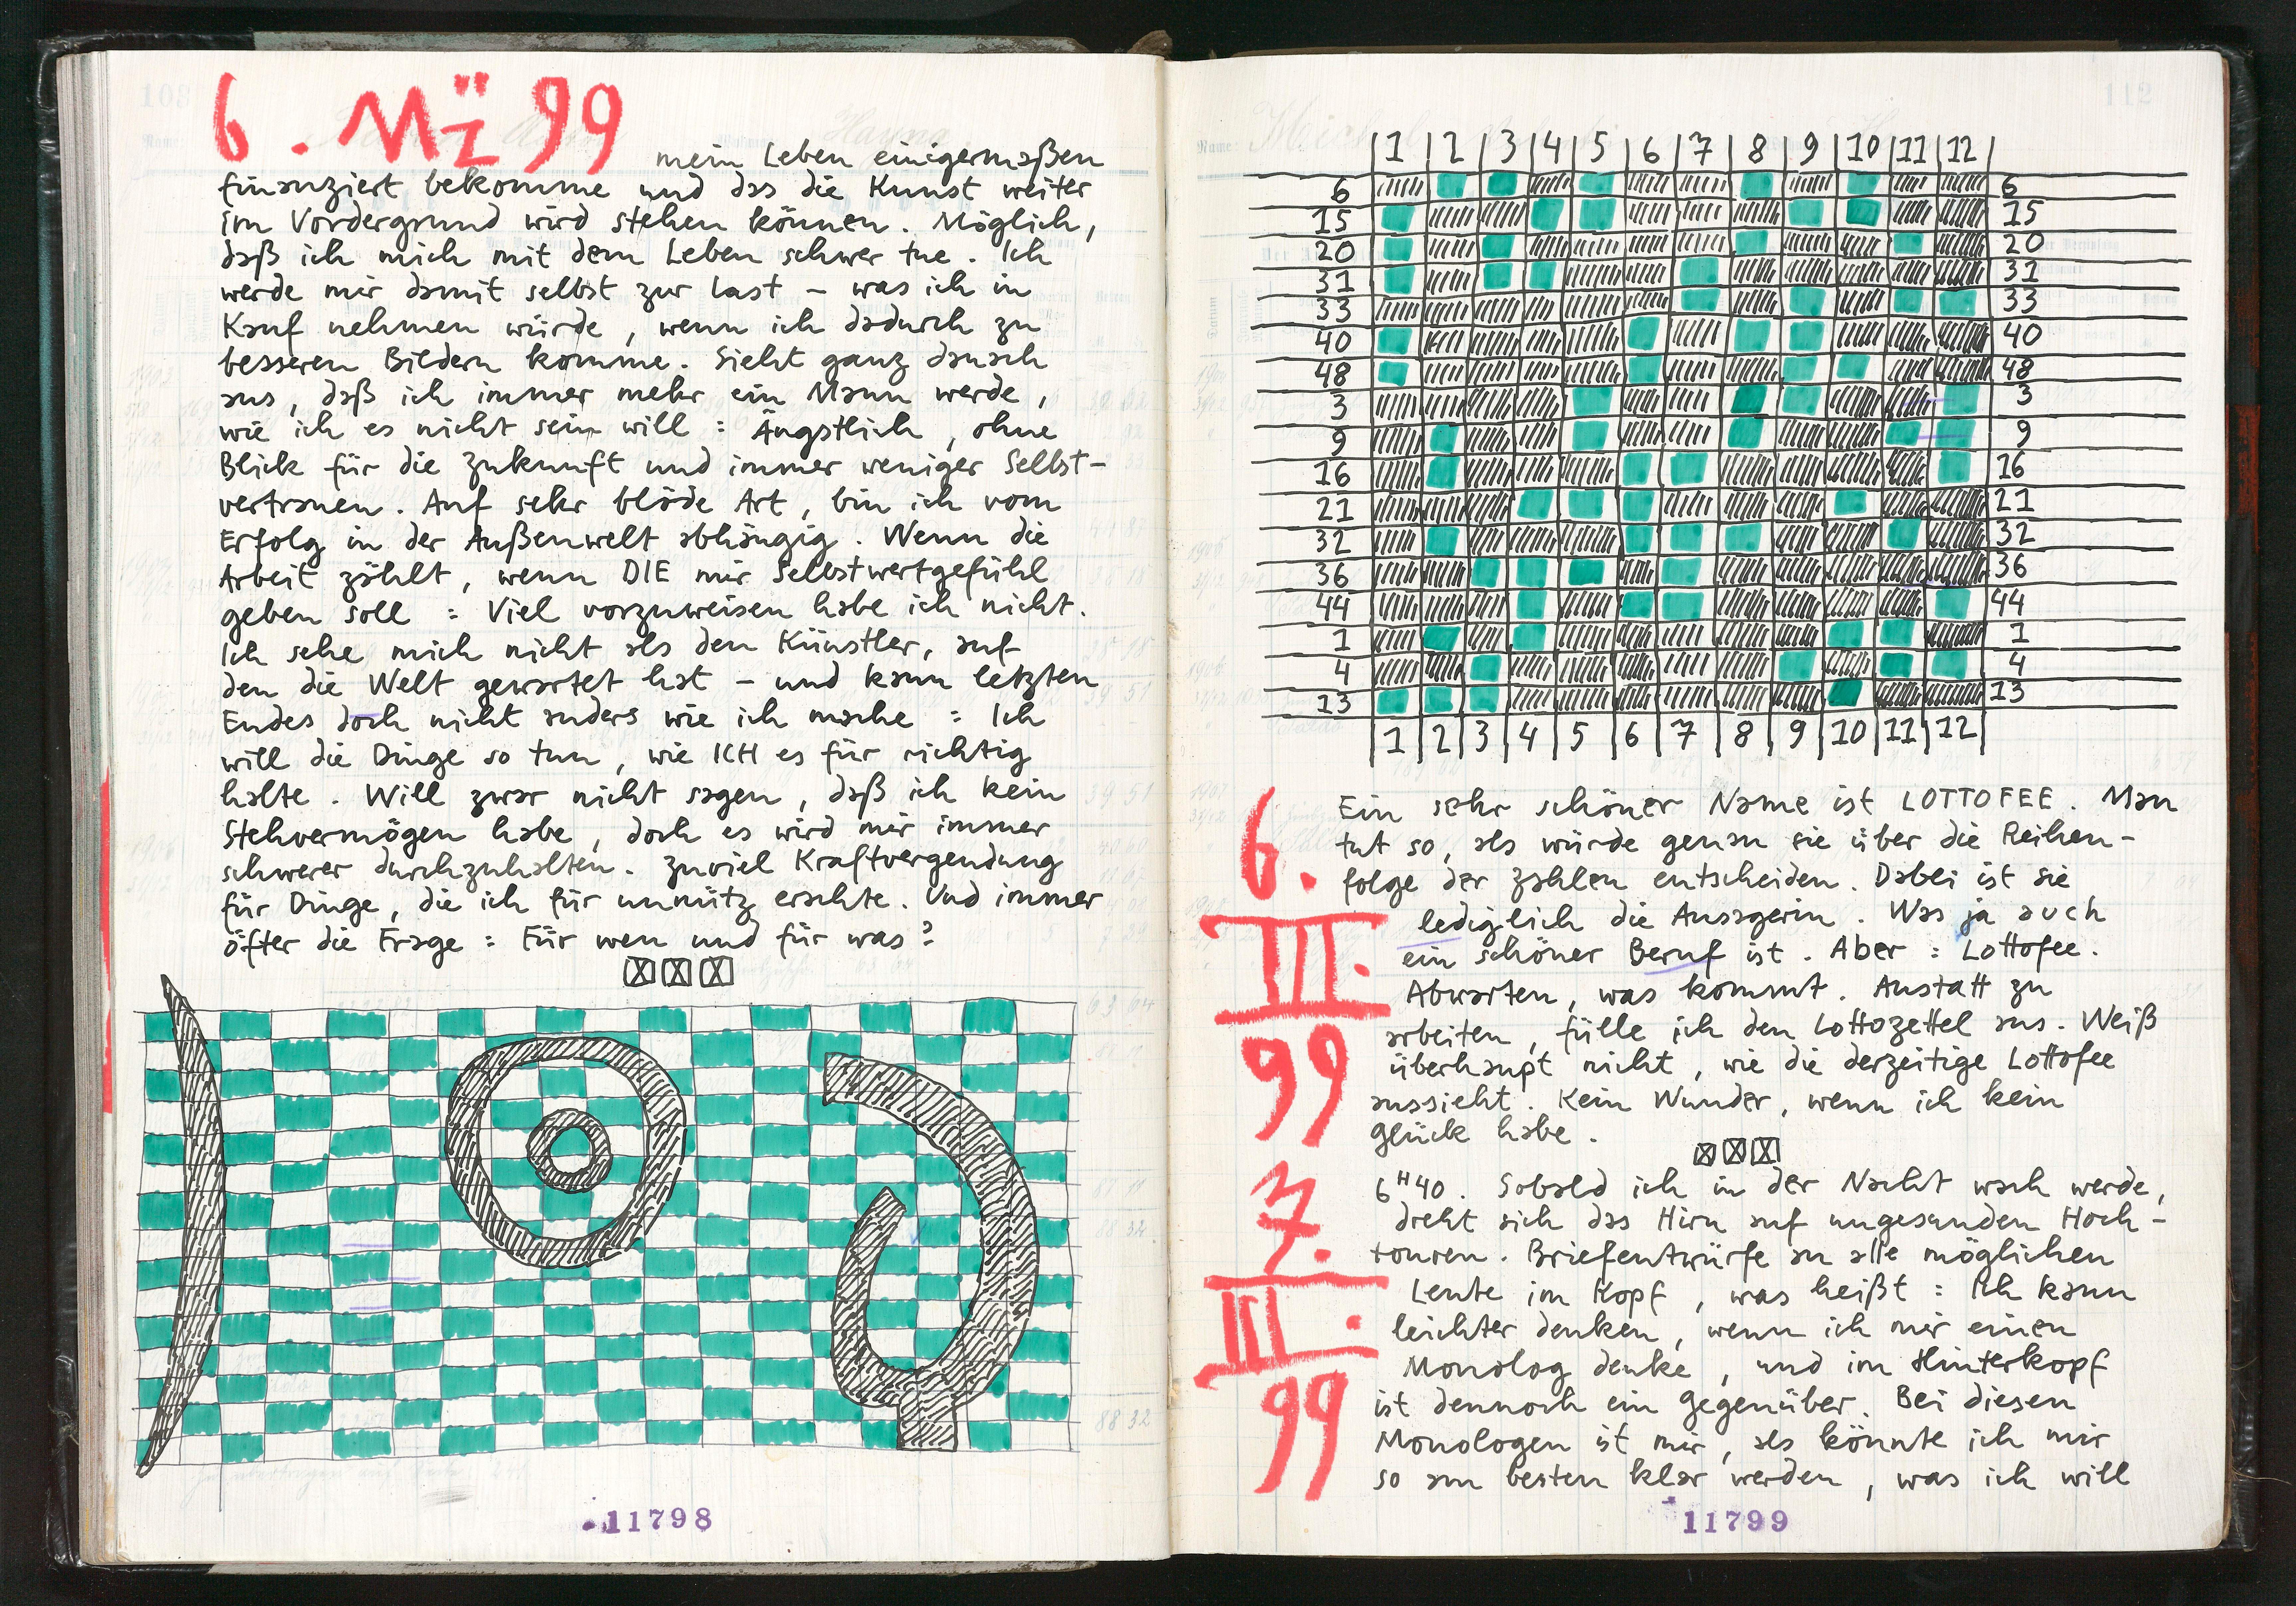 6. Mä 99
mein Leben einigermaßen
finanziert bekomme und das die Kunst weiter
im Vordergrund wird stehen können. Möglich,
daß ich mich mit dem Leben schwer tue. Ich
werde mir damit selbst zur Last – was ich in
Kauf nehmen würde, wenn ich dadurch zu
besseren Bildern komme. Sieht ganz danach
aus, daß ich immer mehr ein Mann werde,
wie ich es nicht sein will : Ängstlich, ohne
Blick für die Zukunft und immer weniger Selbst-
vertrauen. Auf sehr blöde Art, bin ich vom
Erfolg in der Außenwelt abhängig. Wenn die
Arbeit zählt, wenn DIE mir Selbstwertgefühl
geben soll : Viel vorzuweisen habe ich nicht.
Ich sehe mich nicht als den Künstler, auf
den die Welt gewartet hat – und kann letzten
Endes doch nicht anders wie ich mache : Ich
will die Dinge so tun, wie ICH es für richtig
halte. Will zwar nicht sagen, daß ich kein
Stehvermögen habe, doch es wird mir immer
schwerer durchzuhalten. Zuviel Kraftvergeudung
für Dinge, die ich für unnütz erachte. Und immer
öfter die Frage : Für wen und für was?
11798
112
1 2 3 4 5 6 7 8 9 10 11 12
6 6
15 15
20 20
31 31
33 33
40 40
48 48
3 3
9 9
16 16
21 21
32 32
36 36
44 44
1 1
4 4
13 13
1 2 3 4 5 6 7 8 9 10 11 12
6. III. 99
Ein sehr schöner Name ist LOTTOFEE. Man
tut so, als würde genau sie über die Reihen-
folge der Zahlen entscheiden. Dabei ist sie
lediglich die Ansagerin. Was ja auch
ein schöner Beruf ist. Aber : Lottofee.
Abwarten, was kommt. Anstatt zu
arbeiten, fülle ich den Lottozettel aus. Weiß
überhaupt nicht, wie die derzeitige Lottofee
aussieht. Kein Wunder, wenn ich kein
Glück habe.
7. III. 99
6 H 40. Sobald ich in der Nacht wach werde,
dreht sich das Hirn auf ungesunden Hoch-
touren. Briefentwürfe an alle möglichen
Leute im Kopf, was heißt : Ich kann
leichter denken, wenn ich mir einen
Monolog denke, und im Hinterkopf
ist dennoch ein Gegenüber. Bei diesen
Monologen ist mir, als könnte ich mir
so am besten klar werden, was ich will
11799